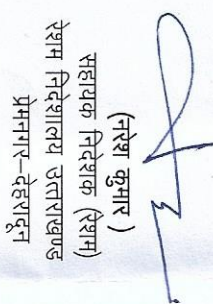 (नरेश कुमार )
सहायक निदेशक (रेशम)
रेशम निदेशालय उत्तराखण्ड
प्रेमनगर–देहरादून